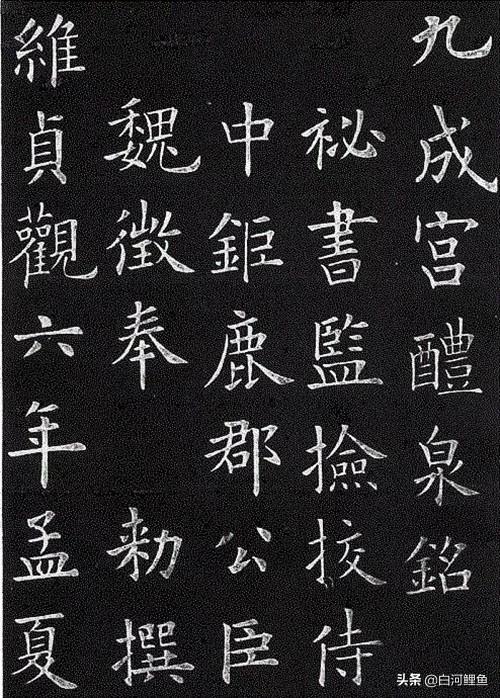 九成宫醴泉銘
祕書監撿挍侍
中鉅鹿郡公臣
魏徵奉 勑撰
維貞觀六年孟夏
头条 @白河鲤鱼